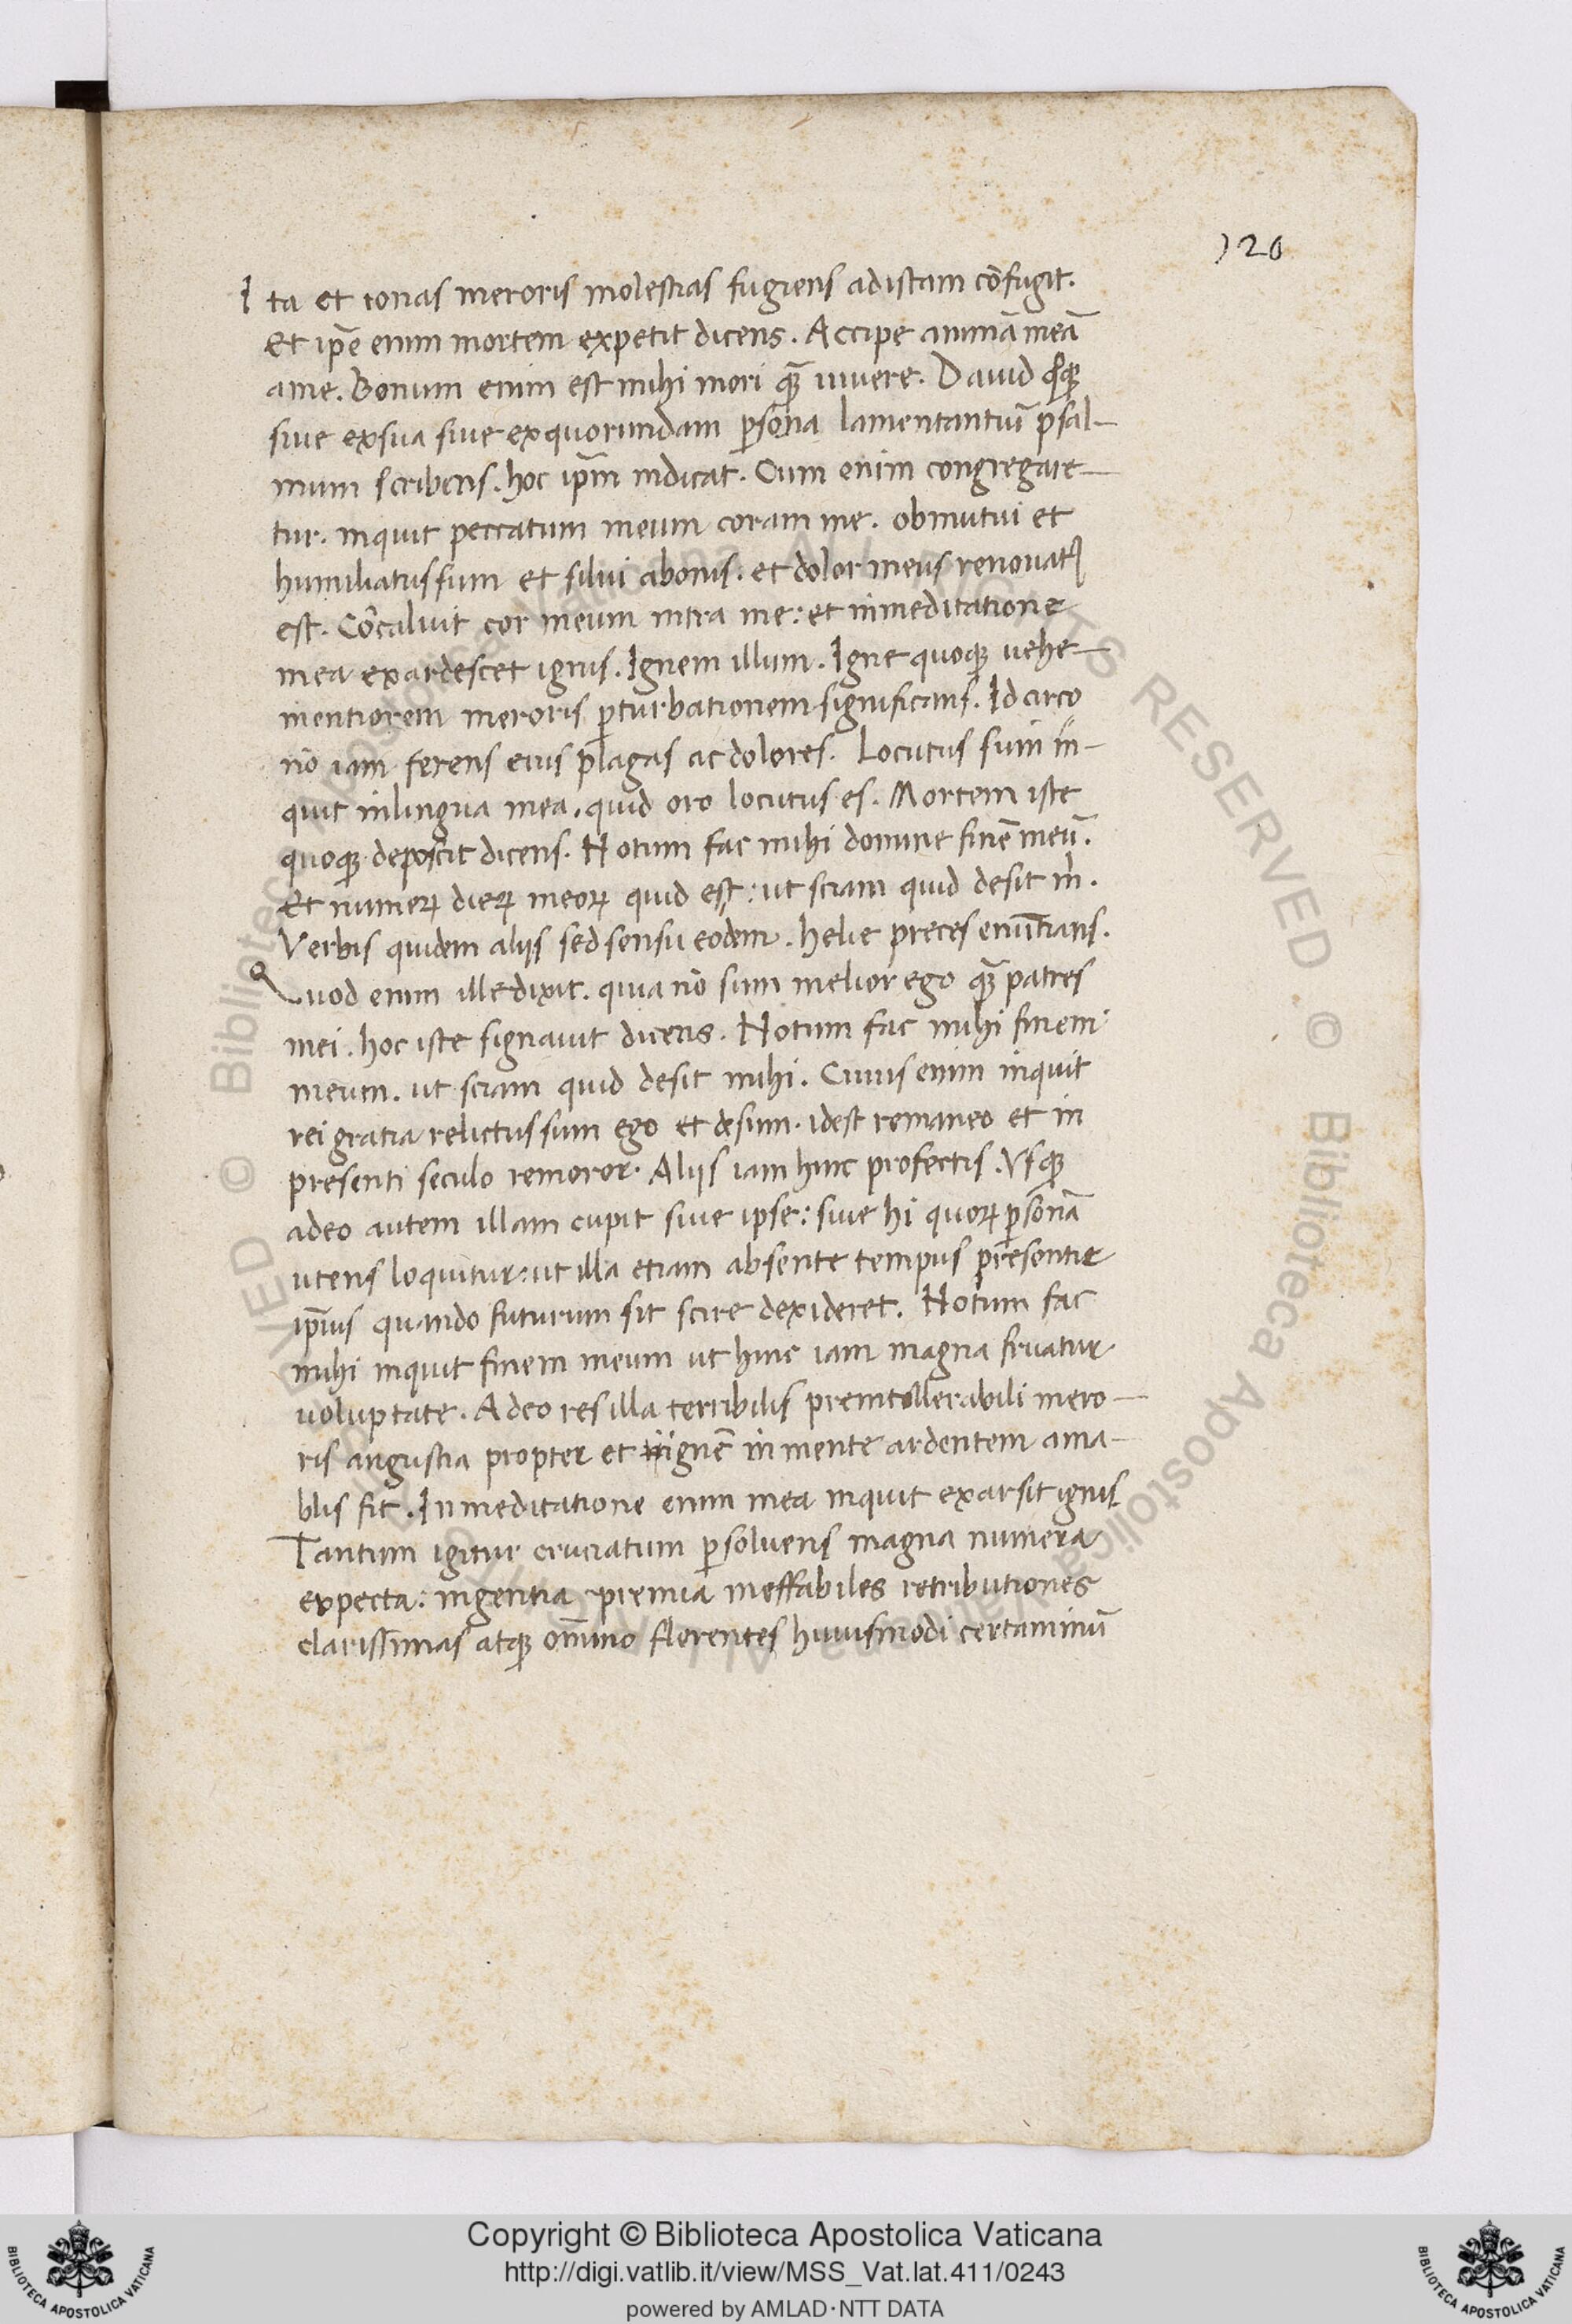 120
Ita et ionas meroris molestias fugiens ad istam cōfugit.
Et ip̄e enim mortem expetit dicens. Accipe animā meā
a me. Bonum enim est mihi mori qꝫ̄ uiuere. Dauid qͦꝫ
siue ex sua siue ex quorundam ꝑsona lamentantiū psal-
mum scribens. hoc ip̄m indicat. Cum enim congregare-
tur. inquit peccatum meum coram me. obmutui et
humiliatus sum et silui a bonis. et dolor meus renouatꝰ
est. Cōcaluit cor meum intra me: et in meditatione
mea exardescet ignis. Ignem illum. Igne quoqꝫ uehe-
mentiorem meroris ꝑturbationem significans. Idcirco
nō iam ferens eius plagas ac dolores. Locutus sum in-
quit in lingua mea. quid oro locutus es. Mortem iste
quoqꝫ deposcit dicens. Notum fac mihi domine finē meū.
Et numeꝝ dieꝝ meoꝝ quid est: ut sciam quid desit m̄.
Verbis quidem aliis sed sensu eodem. helie preces enūtians.
Quod enim ille dixit. quia nō sum melior ego qꝫ̄ patres
mei. hoc iste signauit dicens. Notum fac mihi finem
meum. ut sciam quid desit mihi. Cuius enim inquit
rei gratia relictus sum ego et desum. idest remaneo et in
presenti seculo remoror. Aliis iam hinc profectis. Vsqꝫ
adeo autem illam cupit siue ipse: siue hi quoꝝ ꝑsonā
utens loquitur: ut illa etiam absente tempus presentie
ip̄ius quando futurum sit scire dexideret. Notum fac
mihi inquit finem meum ut hinc iam magna fruatur
uoluptate. Adeo res illa terribilis pre intollerabili mero-
ris angustia propter et ignē in mente ardentem ama-
blis fit. In meditatione enim mea inquit exarsit ignis
Tantum igitur cruciatum ꝑsoluens magna munera
expecta: ingentia premia ineffabiles retributiones
clarissimas atqꝫ om̄ino florentes huiusmodi certaminū
© Biblioteca Apostolica Vaticana ALL RIGHTS RESERVED
Copyright © Biblioteca Apostolica Vaticana
http://digi.vatlib.it/view/MSS_Vat.lat.411/0243
powered by AMLAD·NTT DATA
BIBLIOTECA APOSTOLICA VATICANA
BIBLIOTECA APOSTOLICA VATICANA